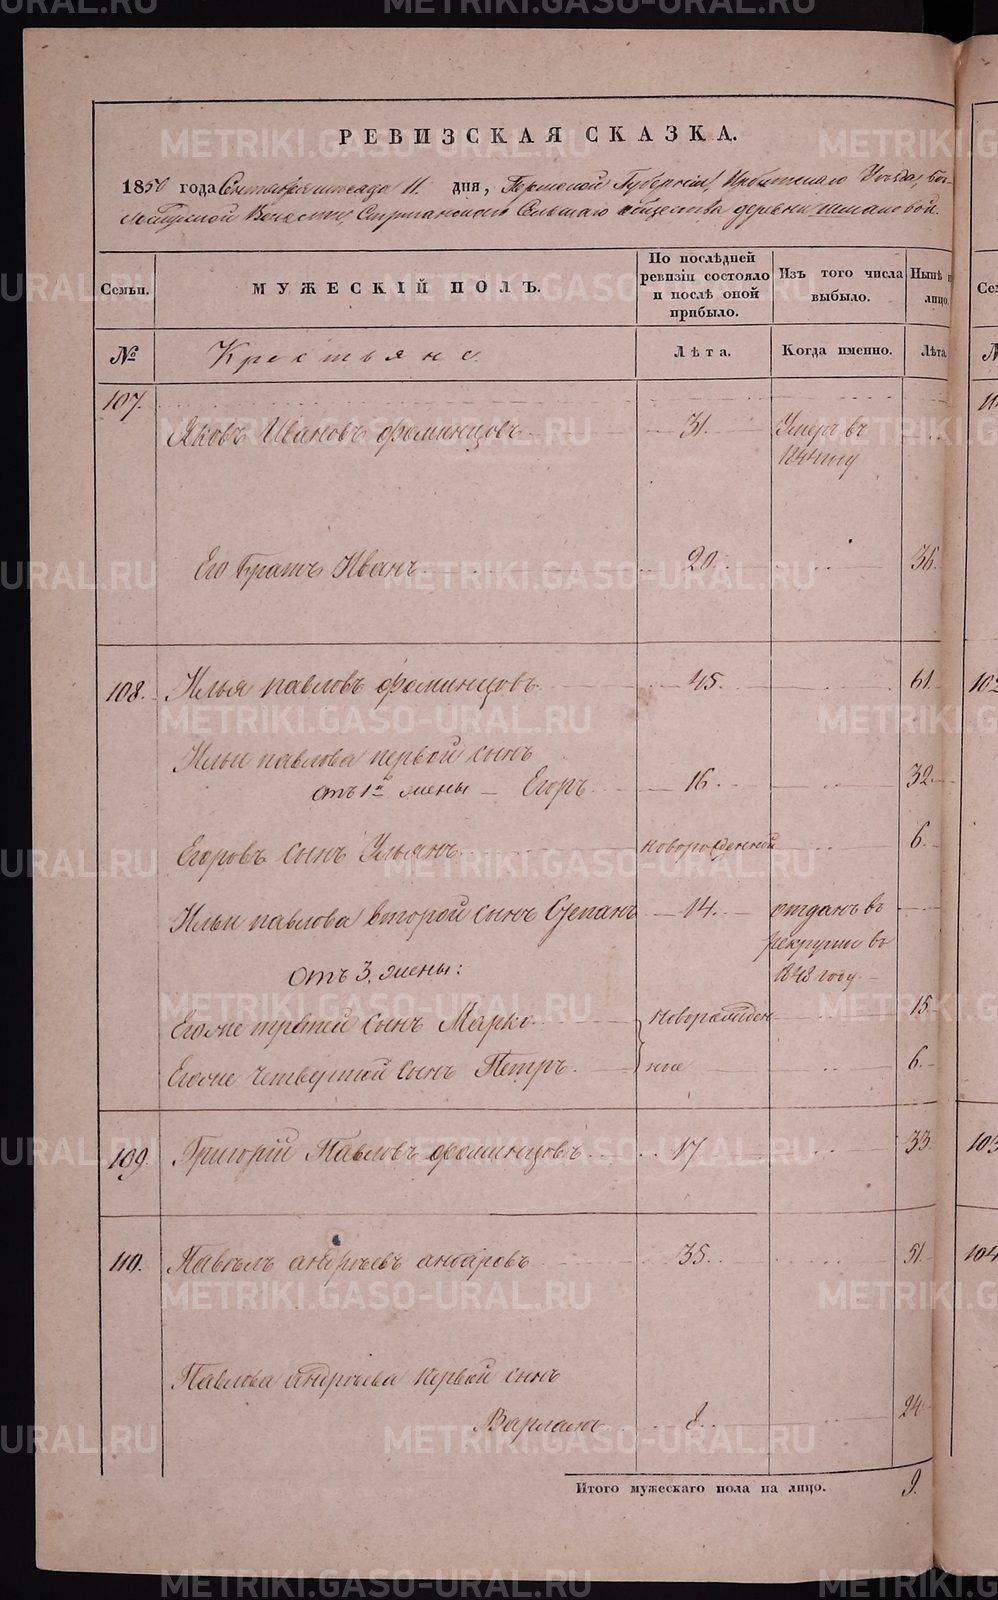 METRIKI.GASO-URAL.RU
РЕВИЗСКАЯ СКАЗКА.
1850 года Сентября месяца 11. дня, Пермской Губерніи, Ирбитскаго Уезда,
Волости, Сельскаго общества деревни
Семьи.
МУЖЕСКІЙ ПОЛЪ.
По послѣдней ревизіи состояло и послѣ оной прибыло.
Изъ того числа выбыло.
Нынѣ
лицо.
№
Крестьяне
Лѣта.
Когда именно.
Лѣта
107.
Яковъ Ивановъ Фоминцовъ 31. Умеръ въ
1844 году
Его братъ Иванъ 20. 36.
108. Илья павловъ фоминцовъ 45. 61.
Ильи павлова первой сынъ
отъ 1й жены – Егоръ 16. 32.
Егоровъ сынъ Ульянъ новорожденной 6.
Ильи павлова второй сынъ Степанъ 14. отданъ въ
рекруты въ
1848 году.
отъ 3. жены:
Егоже третей сынъ Марко новорожден 15.
Егоже четвертой сынъ Петръ. ные 6.
109. Григорій Павловъ фоминцовъ 17 33
110. Павелъ андреевъ 35. 51.
Павлова андреева первой сынъ
8. 24.
Итого мужескаго пола на лицо. 9.